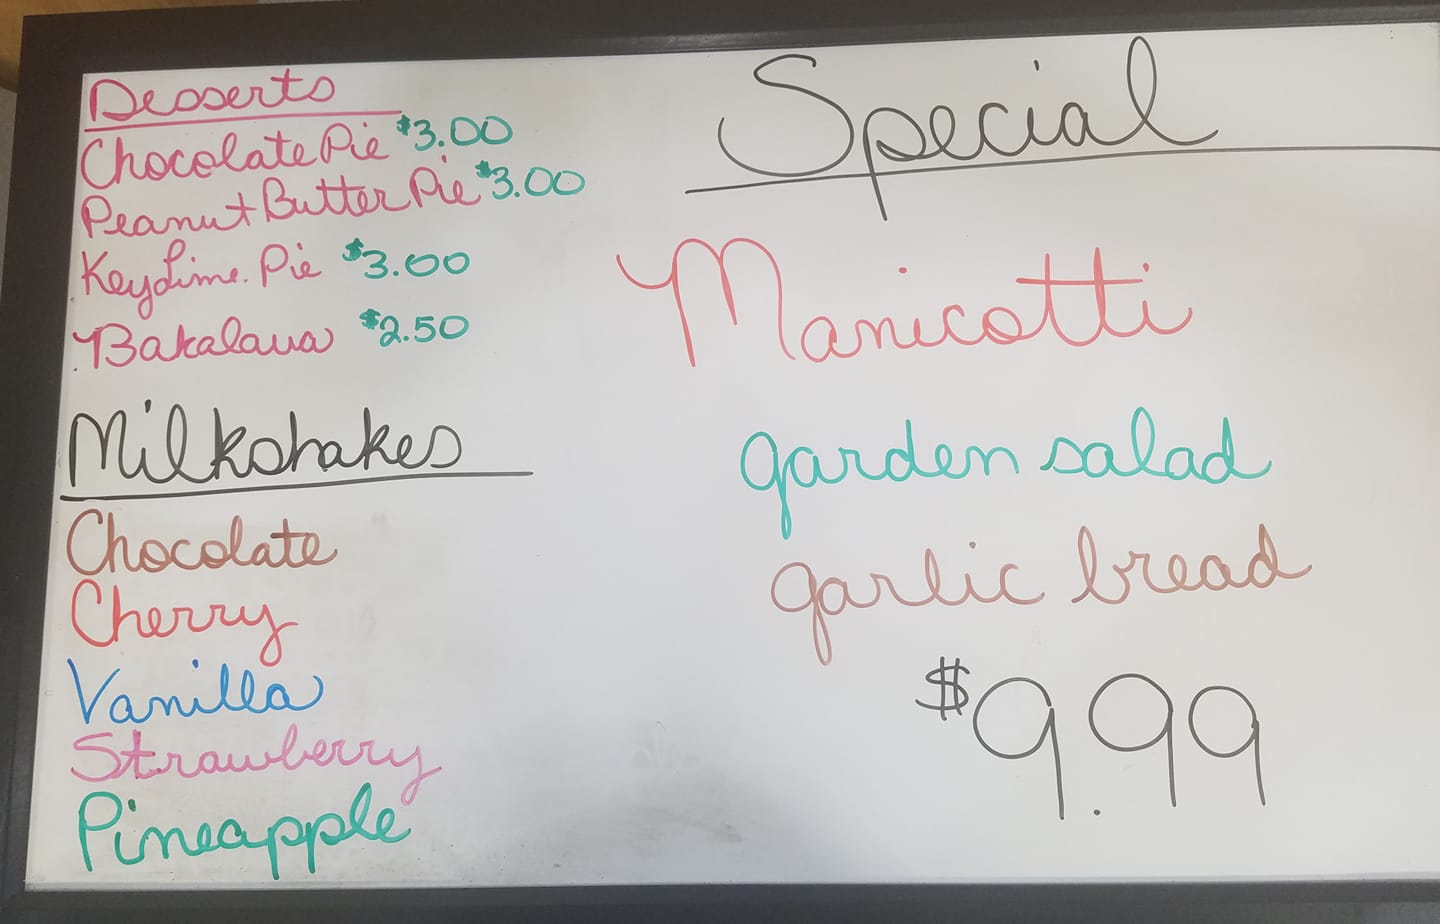 Desserts
Chocolate Pie $3.00
Peanut Butter Pie $3.00
Key Lime. Pie $3.00
Bakalava $2.50
Milkshakes
Chocolate
Cherry
Vanilla
Strawberry
Pineapple
Special
Manicotti
garden salad
garlic bread
$9.99